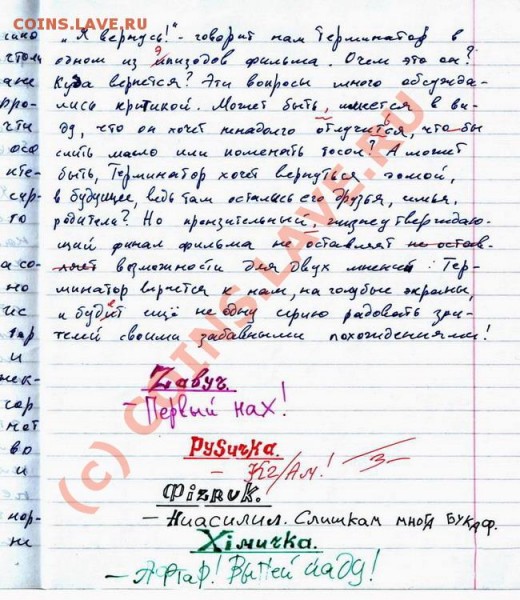 COINS.LAVE.RU
„Я вернусь!“ - говорит нам Терминатор в
одном из эпизодов фильма. О чем это он?
Куда вернется? Эти вопросы много обсужда-
лись критикой. Может быть, имеется в ви-
ду, что он хочет ненадолго отлучится, что бы
слить масло или поменять тосол? А может
быть, Терминатор хочет вернуться домой,
в будущее, ведь там остались его друзья, семья,
родители? Но пронзительный, жизнеутверждаю-
щий финал фильма не оставляет не остав-
ляет возможности для двух мнений: Тер-
минатор вернется к нам, на голубые экраны,
и будит ещё не одну серию радовать зри-
телей своими забавными похождениями!
Zавуч.
- Первый нах!
РуSичка.
- КГ/Ам! 3-
Фizruk.
- Ниасилил. Слишкам многа букаф.
Хiмичка.
- Афтар! Выпей йаду!
(c) COINS.LAVE.RU